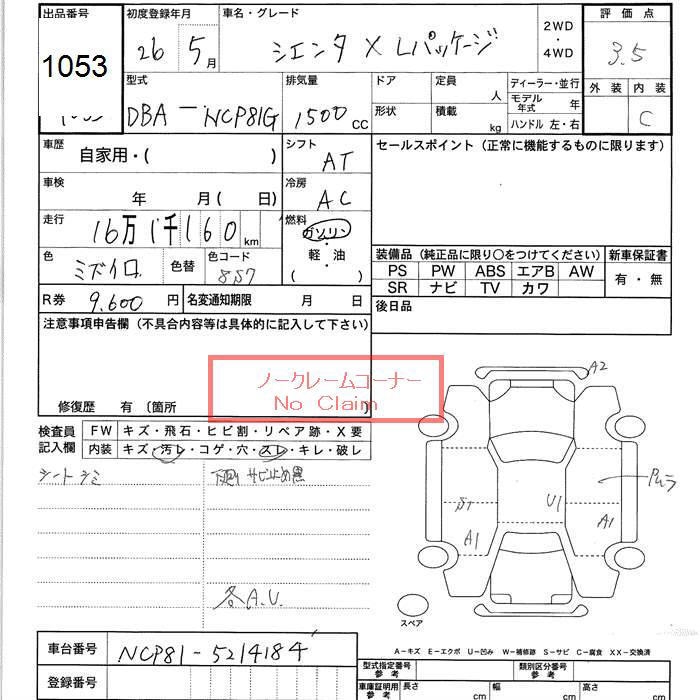 出品番号 初度登録年月 車名・グレード 2WD・4WD 評価点
1053 26 5月 シエンタ X Lパッケージ 3.5
型式 排気量 ドア 定員 人 ディーラー・並行 外装 内装
DBA-NCP81G 1500cc 形状 積載 kg モデル年式 年 C
ハンドル 左・右
車歴 自家用・( ) シフト AT セールスポイント (正常に機能するものに限ります)
車検 年 月( 日) 冷房 AC
走行 16万1千160km 燃料 ガソリン・軽油・( )
色 ミズイロ 色替 色コード 857
装備品 (純正品に限り○をつけてください) 新車保証書
PS PW ABS エアB AW 有・無
SR ナビ TV カワ
R券 9,600円 名変通知期限 月 日 後日品
注意事項申告欄 (不具合内容等は具体的に記入して下さい)
ノークレームコーナー
No Claim
修復歴 有 〔箇所
A2
検査員記入欄 FW キズ・飛石・ヒビ割・リペア跡・X要
内装 キズ・汚レ・コゲ・穴・スレ・キレ・破レ
シートシミ 下廻りサビ止め黒
U1 A1 A1
各A.U.
スペア
A-キズ E-エクボ U-凹み W-補修跡 S-サビ C-腐食 XX-交換済
車台番号 NCP81-5214184
型式指定番号 参考 類別区分番号 参考
登録番号 車庫証明用参考 長さ cm 幅 cm 高さ cm